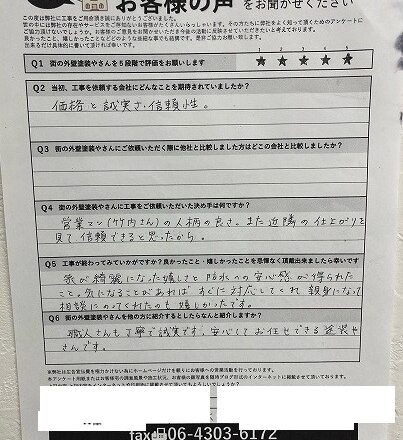 お客様の声をお聞かせください
この度は弊社に工事をご用命頂き誠にありがとうございました。
Q1 街の外壁塗装やさんを5段階で評価をお願いします
1 2 3 4 5
★ ★ ★ ★ ★
Q2 当初、工事を依頼する会社にどんなことを期待されていましたか?
価格と誠実さ、信頼性。
Q3 街の外壁塗装やさんにご依頼いただく際に他社と比較しました方はどこの会社と比較しましたか?
Q4 街の外壁塗装やさんに工事をご依頼いただいた決め手は何ですか?
営業マン(竹内さん)の人柄の良さ。また近隣の仕上がりを
見て信頼できると思ったから。
Q5 工事が終わってみていかがですか?良かったこと・嬉しかったことを忌憚なく頂戴出来ましたら幸いです
家が綺麗になった嬉しさと防水への安心感が得られた
こと。気になることがあれば、すぐに対応してくれ親身になって
相談にのってくれたのも嬉しかったです。
Q6 街の外壁塗装やさんを他の方に紹介するとしたらなんと紹介しますか?
職人さんも丁寧で誠実です。安心してお任せできる塗装や
さんです。
fax 06-4303-6172